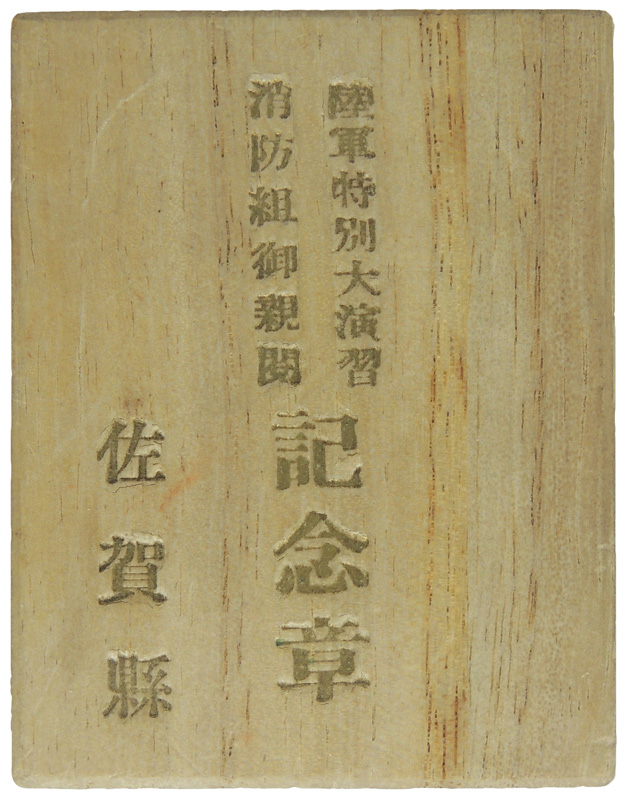 陸軍特別大演習
消防組御親閲
記念章
佐賀縣